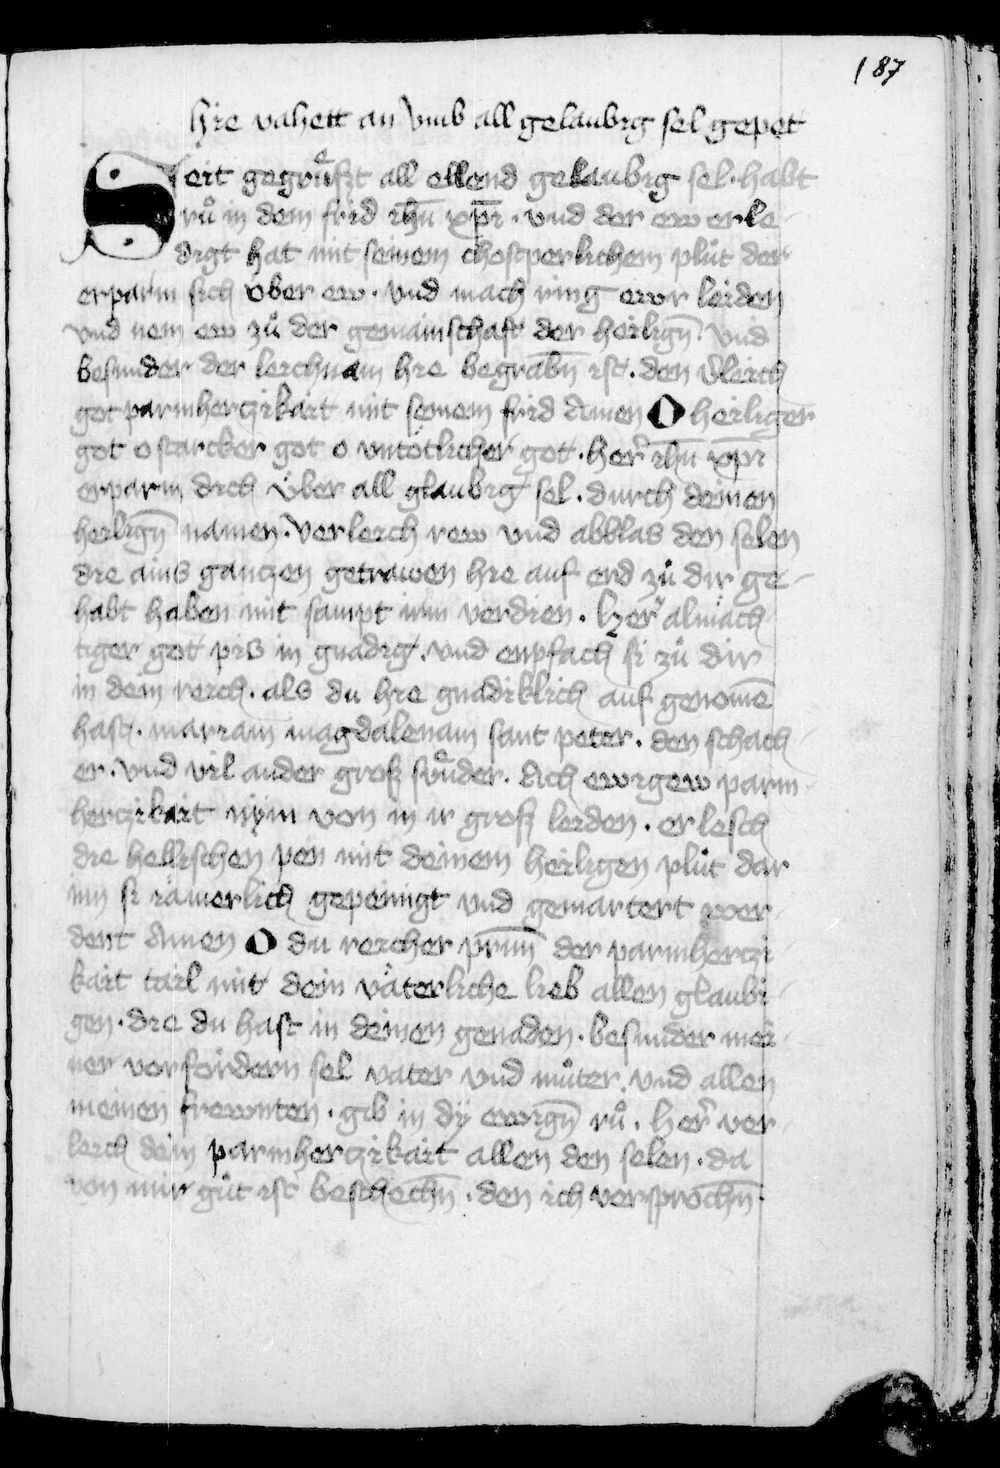 187
hie vahett an vmb all gelaubig sel gepet
Seit gegruͤſzt all ellend gelaubig sel · habt
ruͦ in dem frid ihū xp̄i · vnd der ew erle-
digt hat mit seinem chostperlichem pluͦt der
erparm sich vber ew · vnd mach ring ewr leiden
vnd nem ew zuͦ der gemainschaft der heiligñ · vnd
besunder der leichnam hie begrabñ ist · den verleich
got parmhertzikait mit seinem frid Amen O heiliger
got o starcker got o vntötlicher got · her̄ ihū xp̄i
erparm dich über all glaubig sel · durch deinen
heiligñ namen · verleich rew vnd abblas den selen
die ains gantzen getrawen hie auf erd zuͦ dir ge-
habt haben mit sampt irm verdien · her̄ almäch-
tiger got pis in gnadig · vnd enpfach si zuͦ dir
in dein reich · als du hie gnadiklich auf genomē
hast · mariam magdalenam sant peter · den schach-
er · vnd vil ander grosz sünder · Ach ewigew parm-
hertzikait nym von in ir grosz leiden · erlesch
die hellischen pen mit deinem heiligen pluͦt dar
inn si iämerlich gepeinigt vnd gemartert wer-
dent Amen O du reicher prunn der parmhertzi-
kait tail mit dein väterliche lieb allen glaubi-
gen · die du hast in deinen genaden · besunder mei-
ner vorfördern sel vater vnd muͦter · vnd allen
meinen frewnten · gib in dy ewigñ ruͦ · her̄ ver-
leich dein parmhertzikait allen den selen · da
von mir guͦt ist beschechñ · den ich versprochñ ·